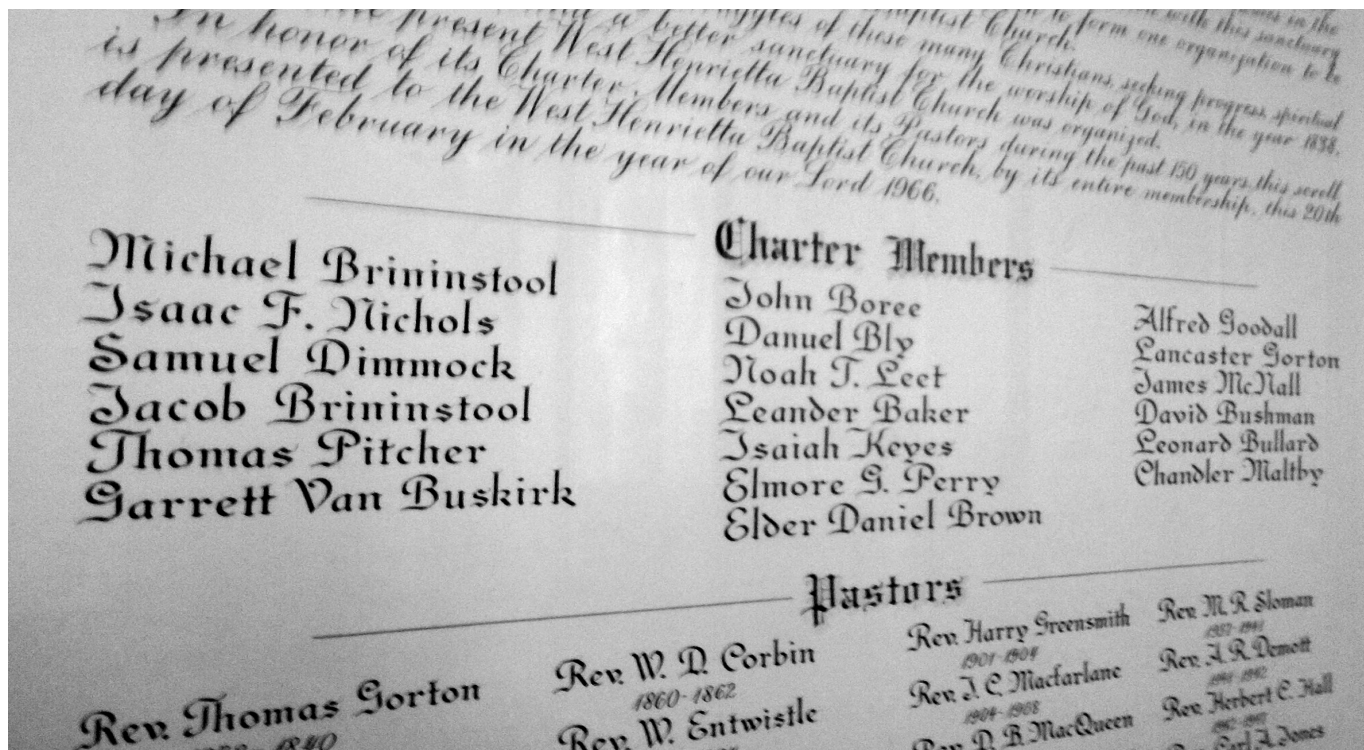 in the
with this sanctuary
to form one organization to be
Baptist Church.
struggles of these many Christians, seeking progress, spiritual
and a better sanctuary for the worship of God, in the year 1838,
the present West Henrietta Baptist Church was organized.
In honor of its Charter Members and its Pastors during the past 150 years this scroll
is presented to the West Henrietta Baptist Church, by its entire membership, this 20th
day of February in the year of our Lord 1966.
Charter Members
Michael Brininstool
Isaac F. Nichols
Samuel Dimmock
Jacob Brininstool
Thomas Pitcher
Garrett Van Buskirk
John Boree
Danuel Bly
Noah T. Leet
Leander Baker
Isaiah Keyes
Elmore G. Perry
Elder Daniel Brown
Alfred Goodall
Lancaster Gorton
James McNall
David Bushman
Leonard Bullard
Chandler Maltby
Pastors
Rev. Thomas Gorton
1840
Rev. W. D. Corbin
1860-1862
Rev. W. Entwistle
Rev. Harry Greensmith
1901-1904
Rev. J. C. Macfarlane
1904-1908
Rev. D. B. MacQueen
Rev. M. R. Sloman
1937-1941
Rev. A. R. Demott
1941-1942
Rev. Herbert C. Hall
Rev. Earl A. Jones